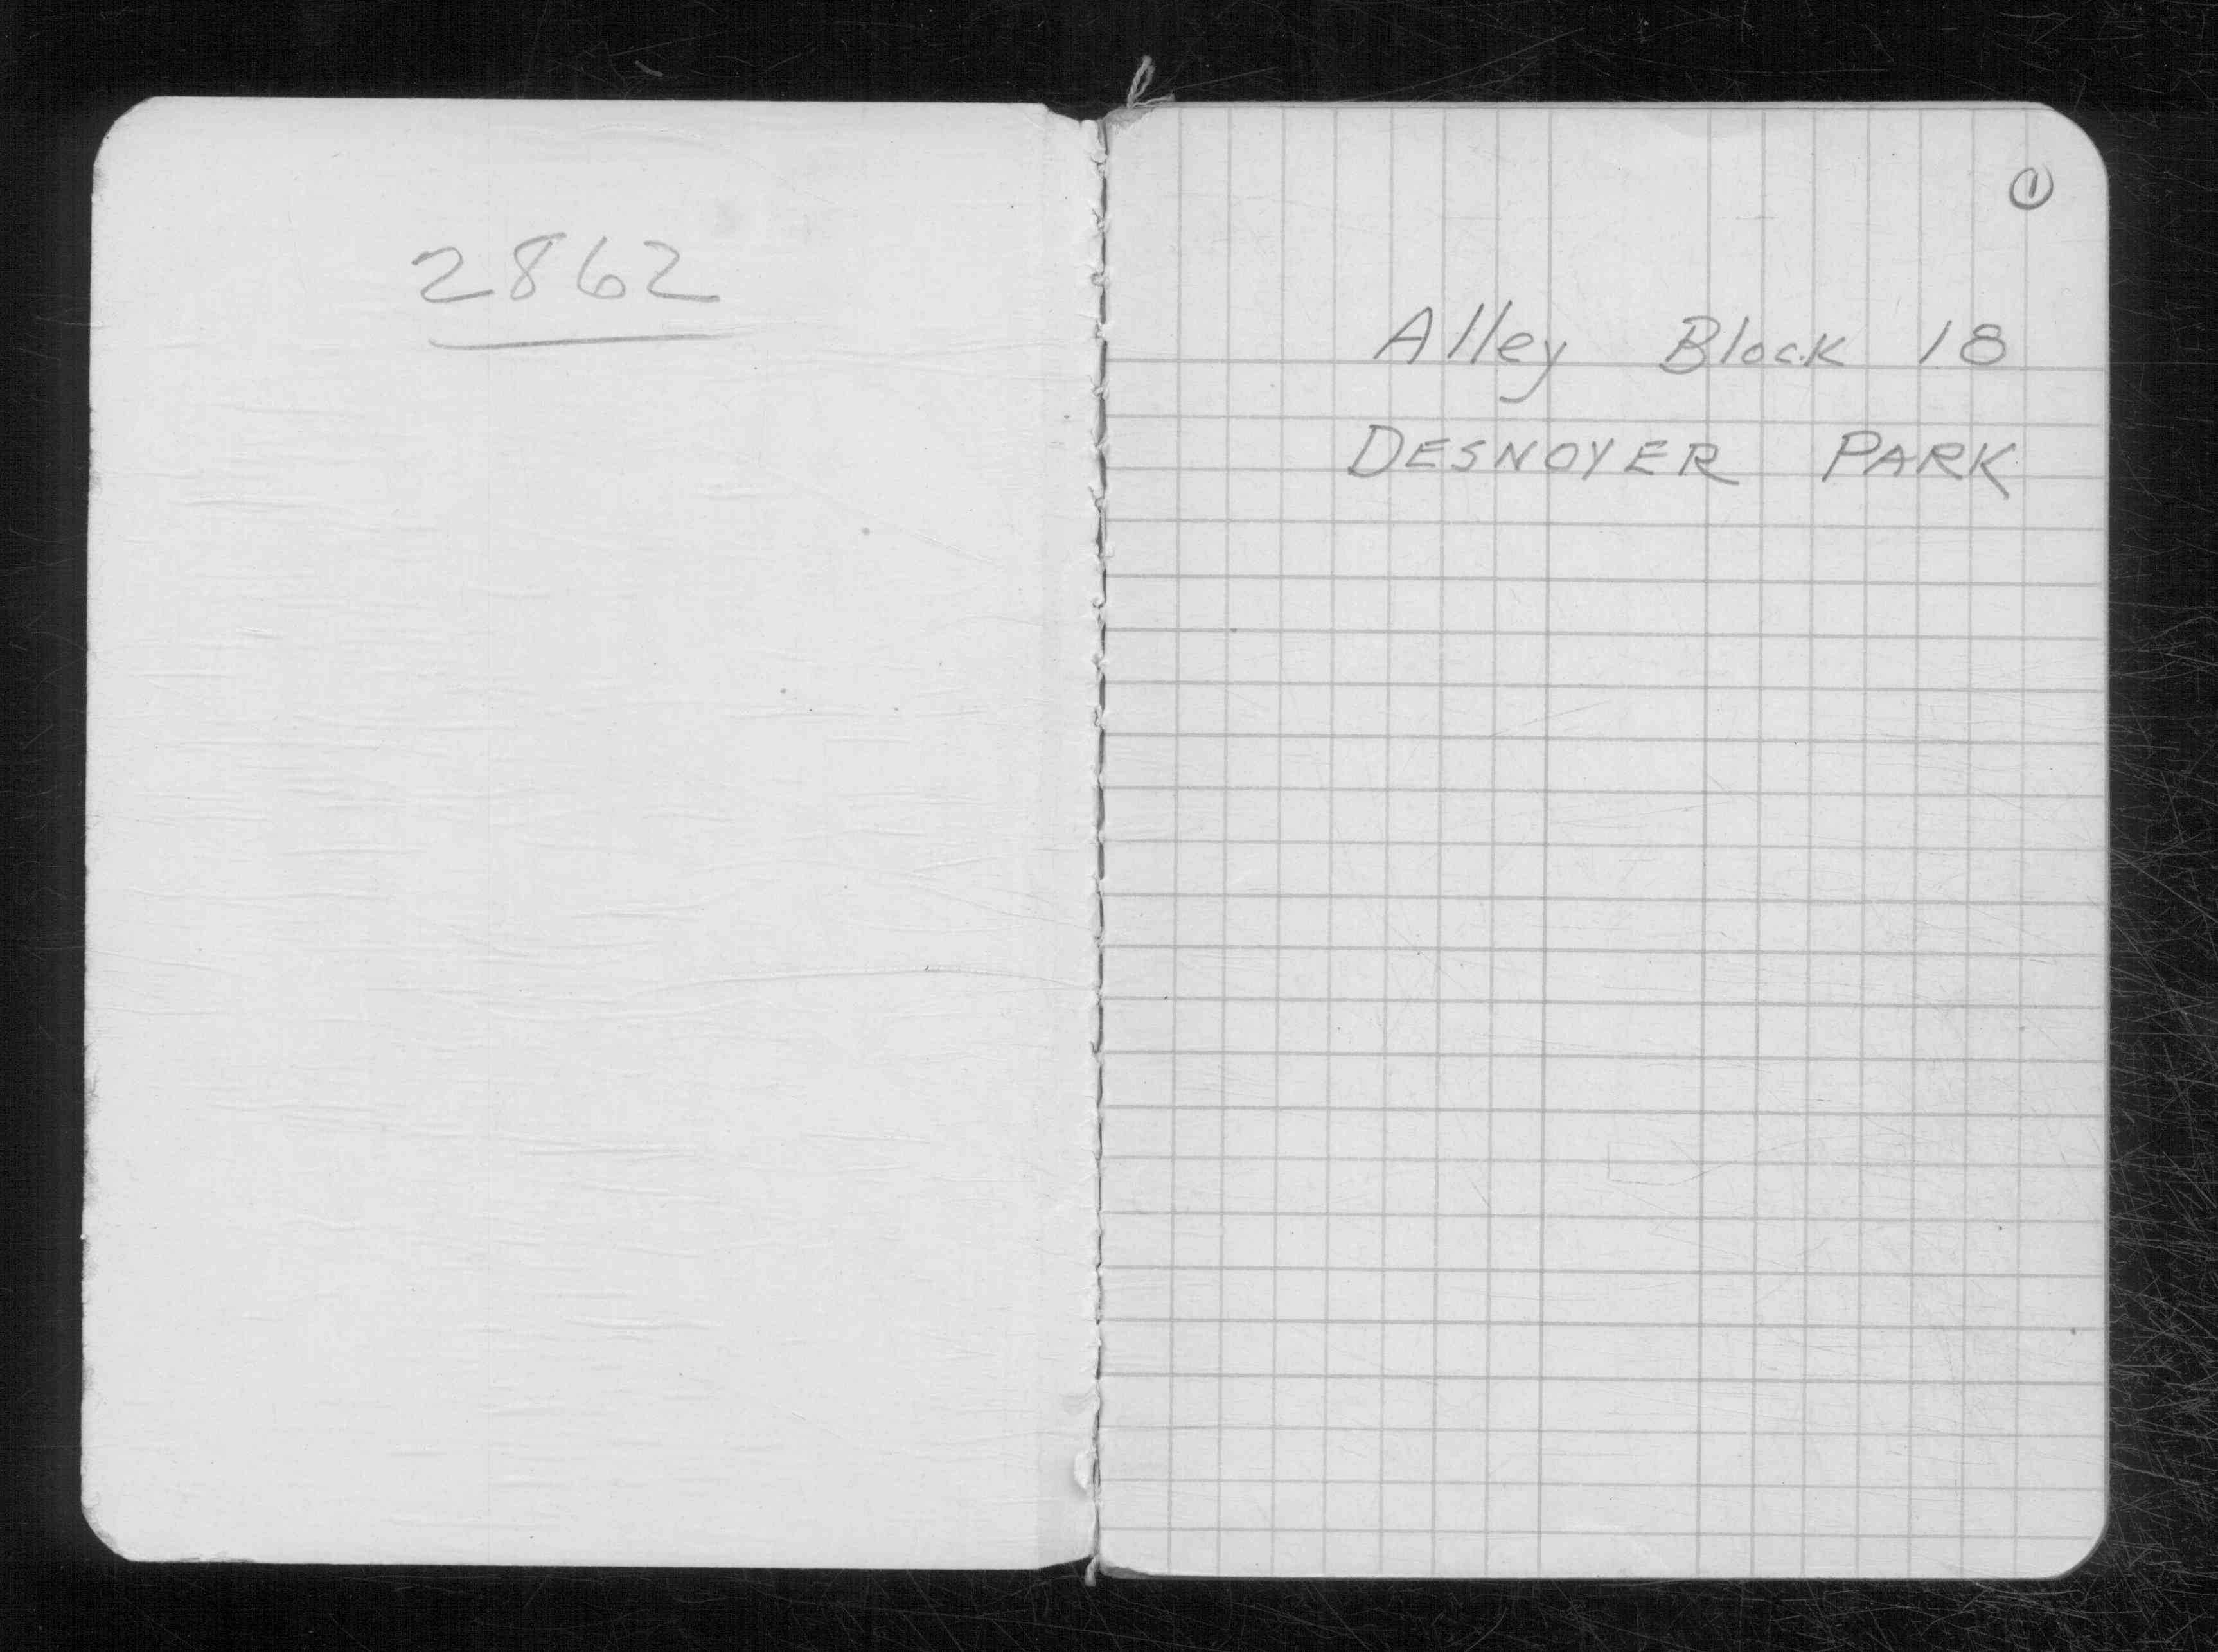 2862
1
Alley Block 18
DESNOYER PARK